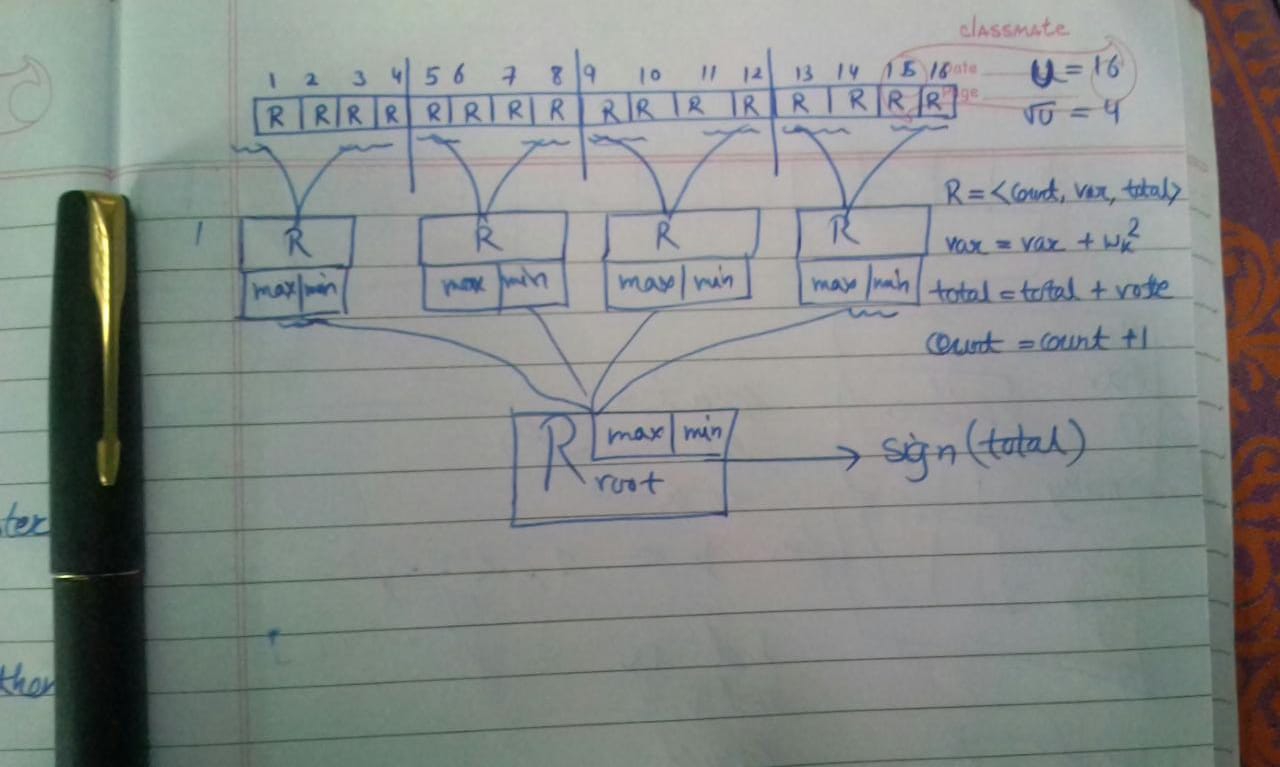 classmate
Date
Page
1 2 3 4 5 6 7 8 9 10 11 12 13 14 15 16
R R R R R R R R R R R R R R R R
U = 16
√U = 4
R = <count, var, total>
var = var + wk²
total = total + vote
count = count + 1
1
R R R R
max | min max | min max | min max | min
R root
max | min
→ sign (total)
ter
ther